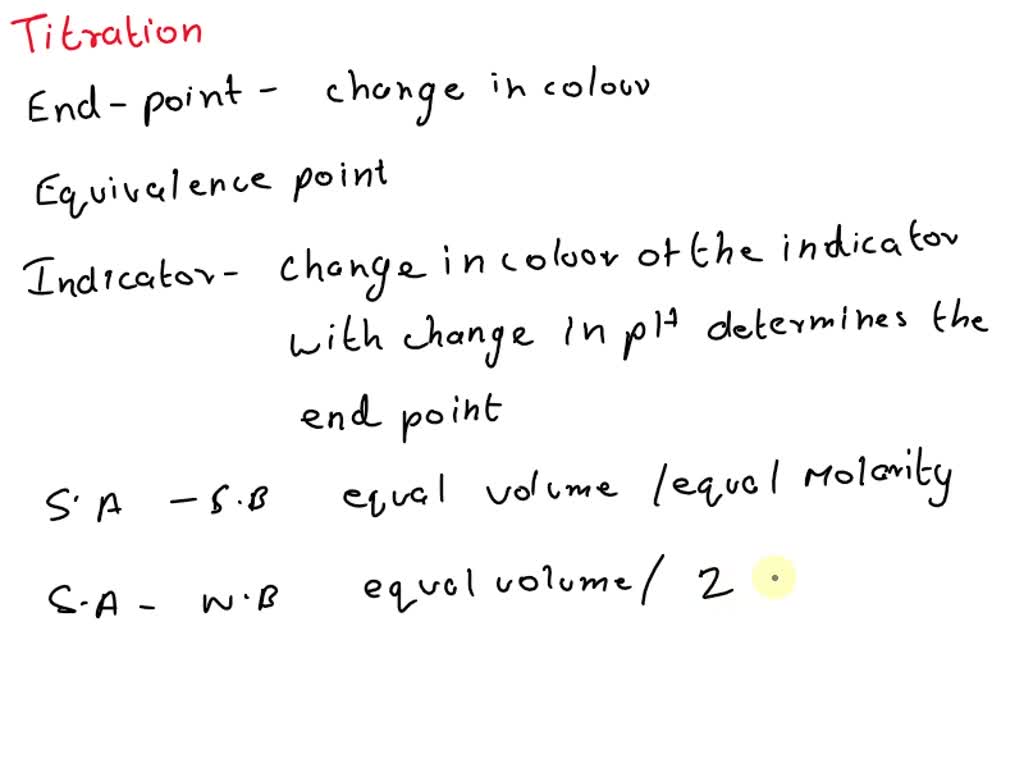 Titration
End-point - change in colour
Equivalence point
Indicator- change in colour of the indicator
with change in pH determines the
end point
S.A - S.B equal volume / equal Molarity
S.A - W.B equal volume / 2